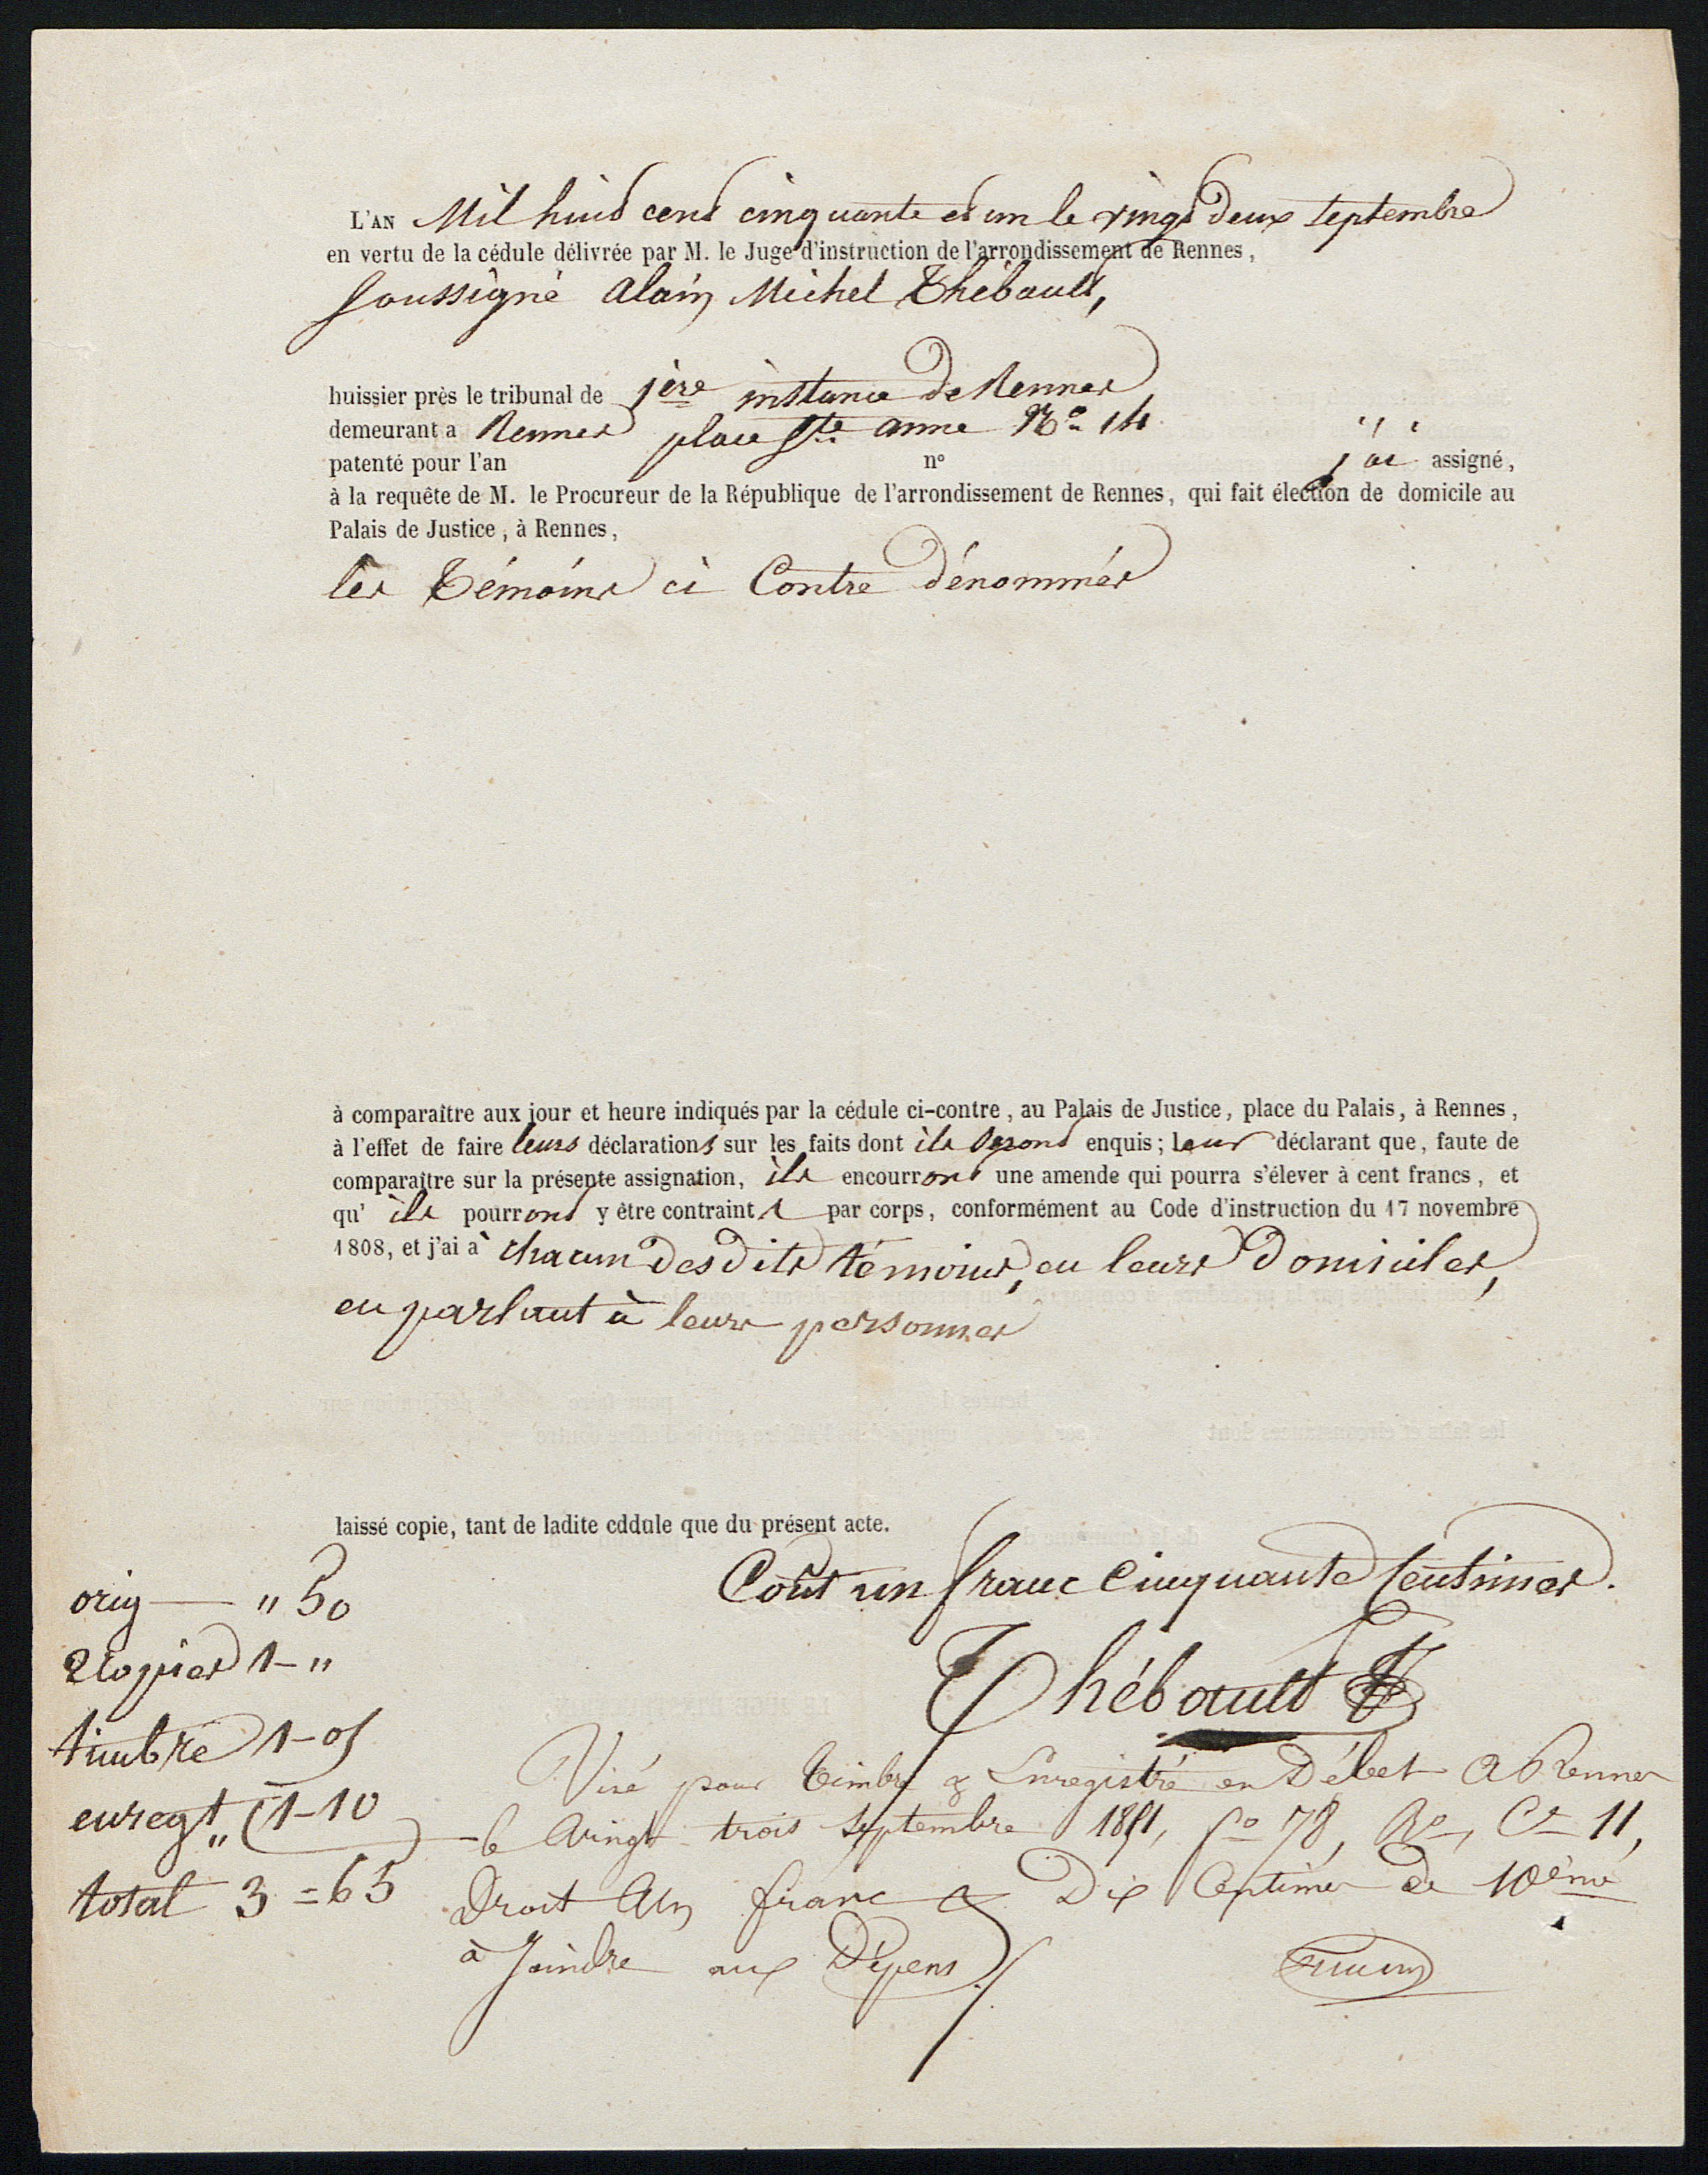 L'AN Mil huit cent cinquante et un le vingt deux septembre
en vertu de la cédule délivrée par M. le Juge d'instruction de l'arrondissement de Rennes,
Soussigné Alain Michel Thébault,
huissier près le tribunal de 1ère instance de Rennes
demeurant a Rennes place Ste anne No 14
patenté pour l'an nº j'ai assigné,
à la requête de M. le Procureur de la République de l'arrondissement de Rennes, qui fait élection de domicile au
Palais de Justice, à Rennes,
les Témoins ci Contre dénommés
à comparaître aux jour et heure indiqués par la cédule ci-contre, au Palais de Justice, place du Palais, à Rennes,
à l'effet de faire leurs déclarations sur les faits dont ils seront enquis; leur déclarant que, faute de
comparaître sur la présente assignation, ils encourront une amende qui pourra s'élever à cent francs, et
qu' ils pourront y être contraint s par corps, conformément au Code d'instruction du 17 novembre
1808, et j'ai à chacun des dits témoins, en leurs domiciles,
en parlant à leurs personnes
laissé copie, tant de ladite cddule que du présent acte.
Coût un franc cinquante centimes.
orig — " 50
2 copies 1 - "
Thébault
timbre 1 - 05
Visé pour timbre & Enregistré en Débet a Rennes
enregt " 1 - 10
le vingt trois septembre 1851, fo 78, Ro, Ce 11,
total 3 = 65
Droit Un franc & Dix Centimes de 10ème
à Joindre aux Dépens